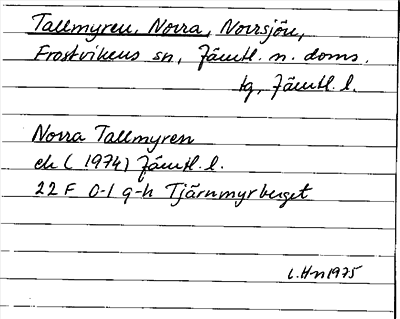 Tallmyren, Norra, Norrsjön,
Frostvikens sn, Jämtl. n. doms.
tg, Jämtl. l.
Norra Tallmyren
ek (1974) Jämtl. l.
22 F 0-1 g-h Tjärnmyrberget
C.Hn 1975